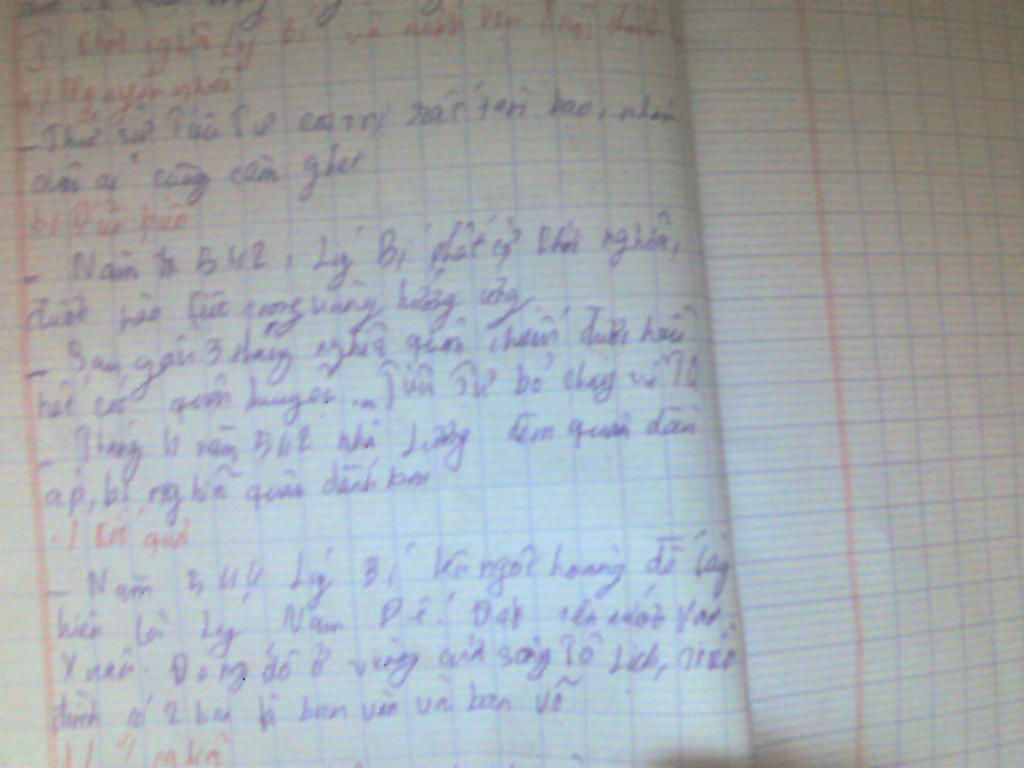 Khởi nghĩa Lý Bí và nước Vạn Xuân
a) Nguyên nhân
- Thứ sử Tiêu Tư cai trị rất tàn bạo, nhân
dân ai cũng căm ghét
b) Diễn biến
- Năm 542, Lý Bí phất cờ khởi nghĩa,
được hào kiệt trong vùng hưởng ứng
- Sau gần 3 tháng nghĩa quân chiếm được hầu
hết các quận huyện Tiêu Tư bỏ chạy về TQ
- Tháng 4 năm 542 nhà Lương đem quân đàn
áp, bị nghĩa quân đánh bại
c) Kết quả
- Năm 544 Lý Bí lên ngôi hoàng đế lấy
hiệu là Lý Nam Đế. Đặt tên nước Vạn
Xuân. Đóng đô ở vùng cửa sông Tô Lịch, triều
đình có 2 ban là ban văn và ban võ